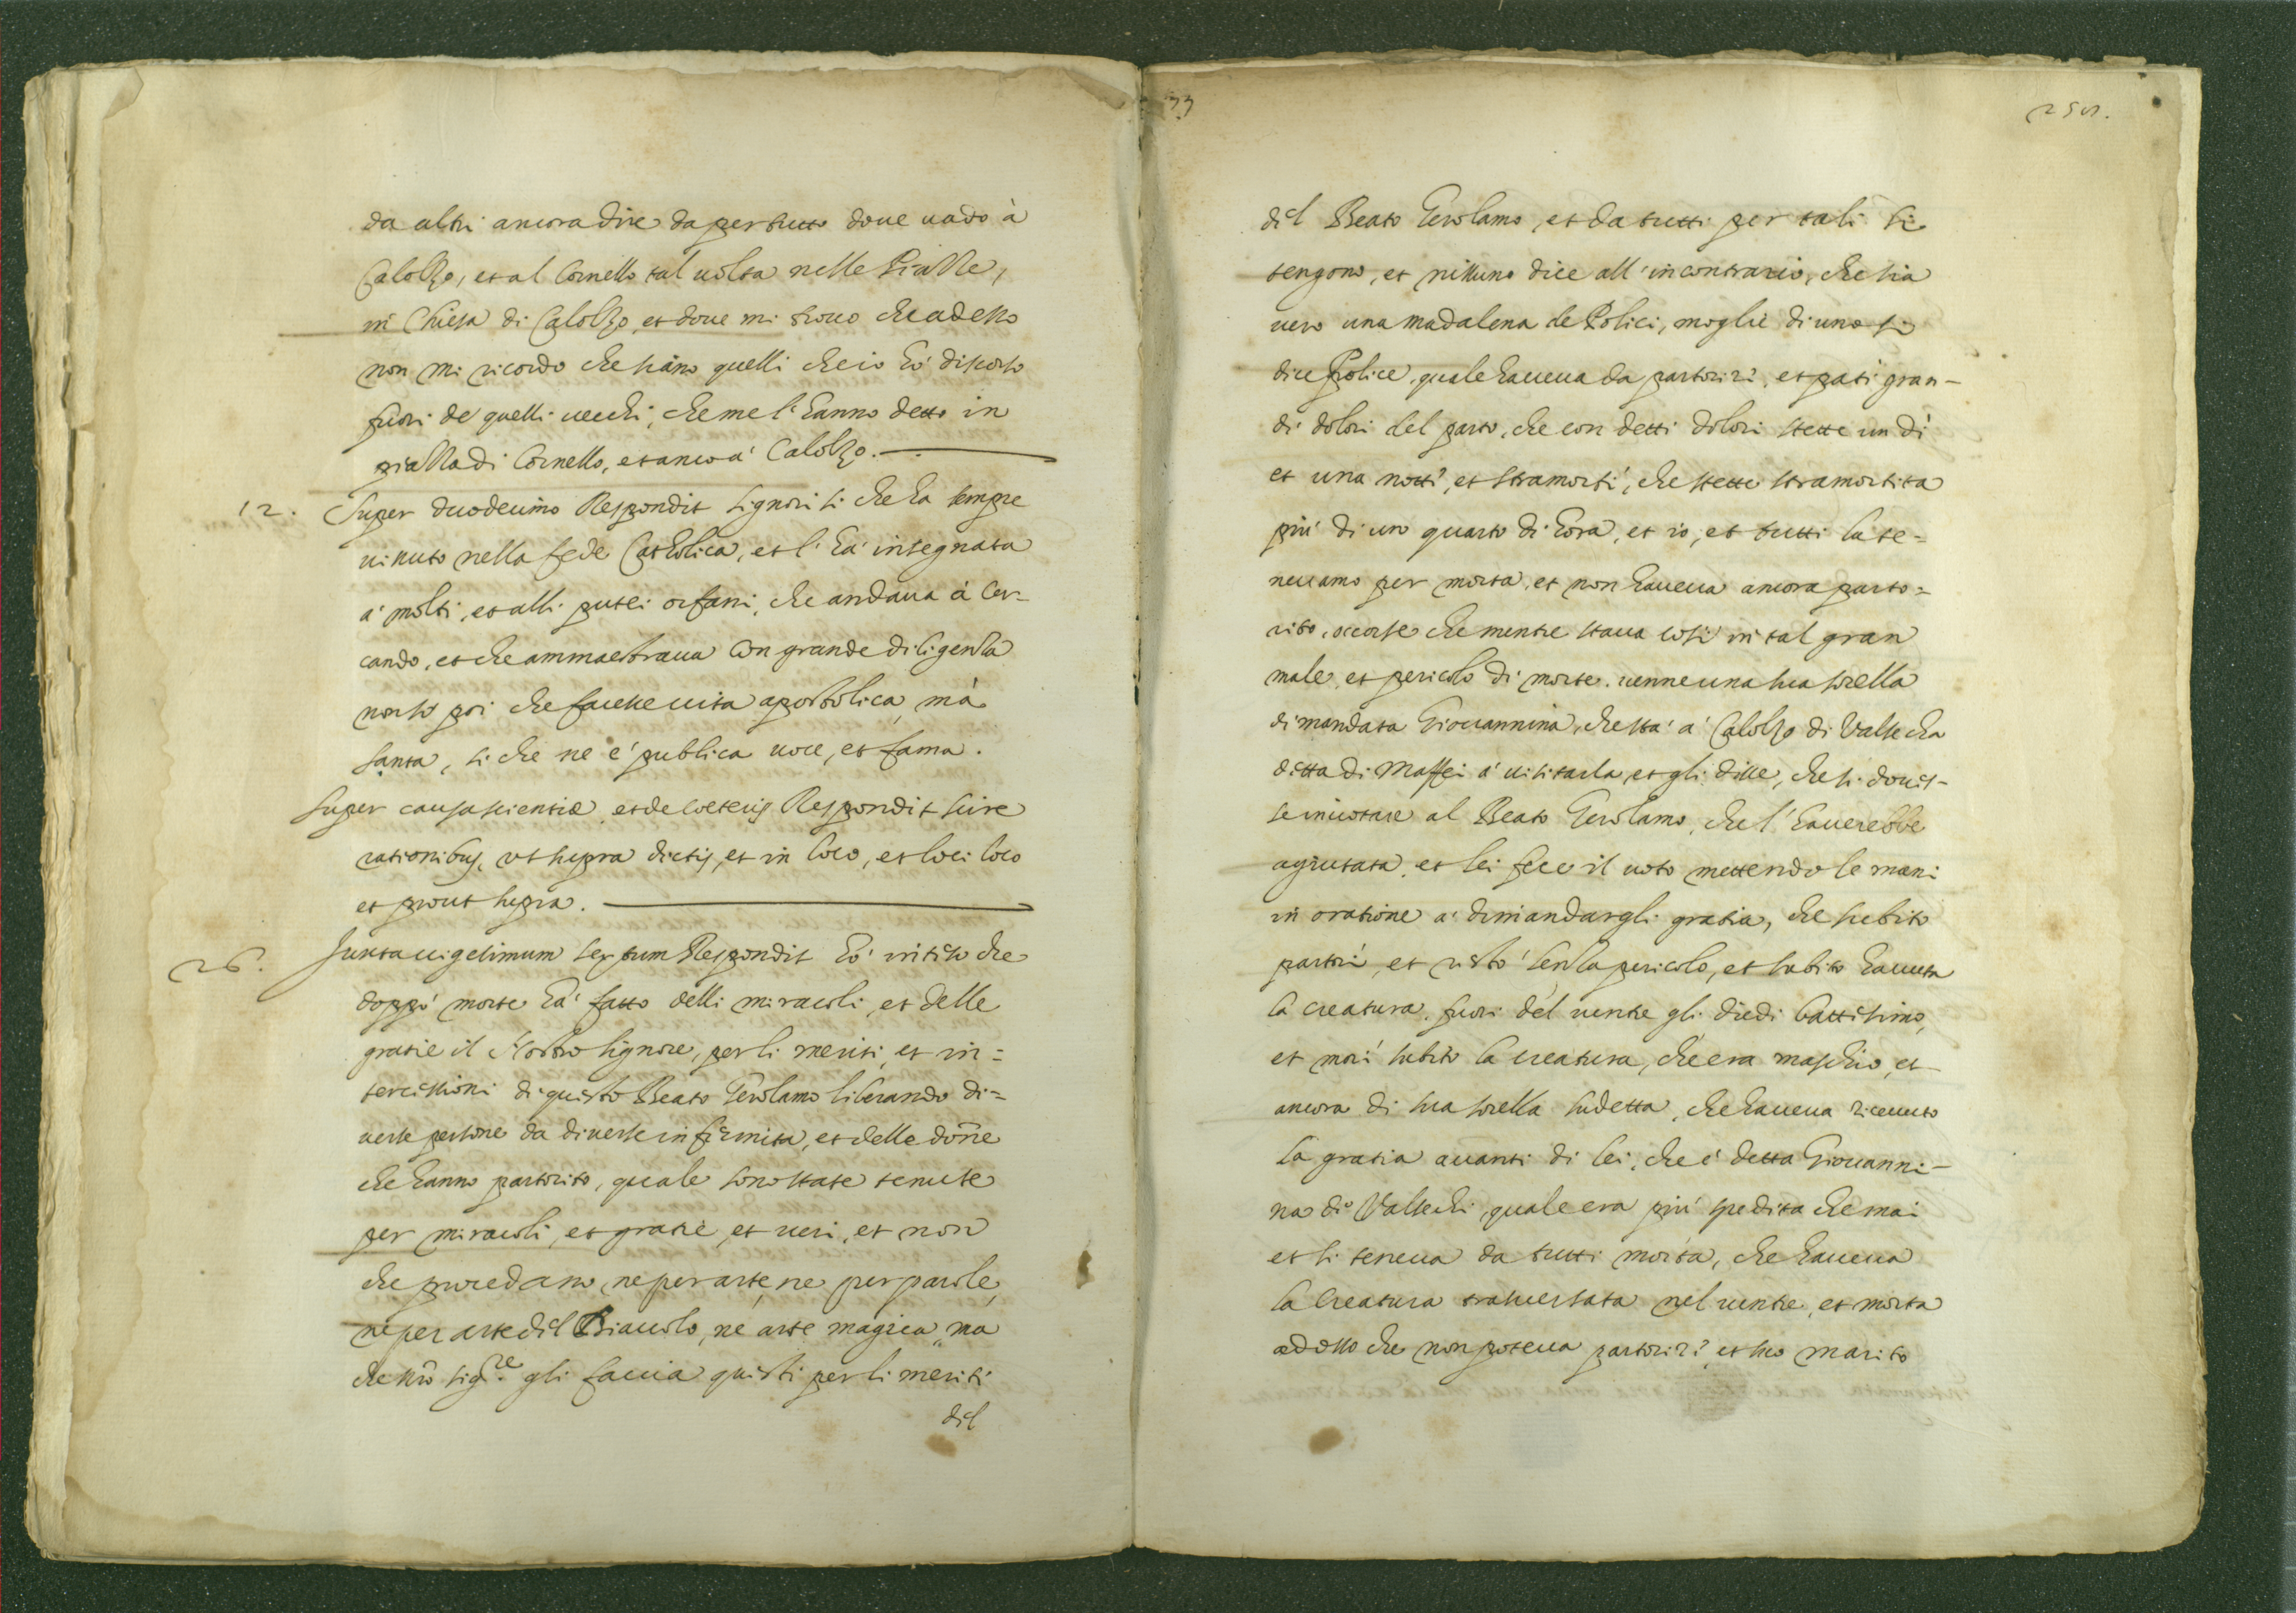 da altri ancora dire da pertutto doue uado à
Calolzo, et al Cornello tal uolta nelle Piazze,
in Chiesa di Calolzo, et doue mi trouo che adesso
non mi ricordo che siano quelli che io hò discorso
fuori de quelli uecchi, che me l'hanno detto in
piazza di Cornello, et anco a' Calolzo.
12. Super duodecimo Respondit signori si che ha sempre
uissuto nella fede Catholica, et l'ha' insegnata
a' molti, et alli putei orfani, che andaua à Cer-
cando, et che ammaestraua con grande diligenza
non so poi che facesse uita apostolica, mà
santa, si che ne e' publica uoce, et fama.
Super causa scientiæ, et de coeteris Respondit scire
rationibus, ut supra dictis, et in loco, et loci loco
et prout supra.
26. Juxta uigesimum sextum Respondit hò inteso che
doppò morte ha' fatto delli miracoli, et delle
gratie il Nostro signore, per li meriti, et in=
tercissioni di questo Beato Gerolamo liberando di=
uerse persone da diuerse infirmita, et delle donne
che hanno partorito, quale sono state tenute
per miracoli, et gratie, et ueri, et non
che procedano, ne per arte, ne per parole,
ne per arte dil Diauolo, nè arte magica, ma
che nro sigre. gli faccia questi per li meriti
dil
33
dil Beato Gerolamo, et da tutti per tali si
tengono, et nissuno dice all'incontrario, che sia
uero una madalena de Polici, moglie di uno si
dice Police, quale haueua da partorire, et pati gran-
di dolori del parto, che con detti dolori stette un dì
et una notte, et stramorti', che stette stramortita
più di un quarto di hora, et io, et tutti la te=
neuamo per morta, et non haueua ancora parto=
rito, occorse che mentre staua così in tal gran
male, et pericolo di morte. uenne una sua sorella
dimandata Giouannina, che sta' a' Calolzo di Valsecha
detta di Maffei a' uisitarla, et gli disse, che si doues-
se inuotare al Beato Gerolamo, che l'hauerebbe
agiutata, et lei fece il uoto mettendo le mani
in oratione a' dimandargli gratia, che subito
partorì, et restò senza pericolo, et subito hauuta
la creatura, fuori del uentre gli diedi battisimo,
et morì subito la creatura, che era maschio, et
ancora di sua sorella sudetta, che haueua riceuuto
la gratia auanti di lei, che è detta Giouanni-
na di Valsechi, quale era più spedita che mai
et si teneua da tutti morta, che haueua
la Creatura trauersata nel uentre, et morta
adosso che non poteua partorire, et suo marito